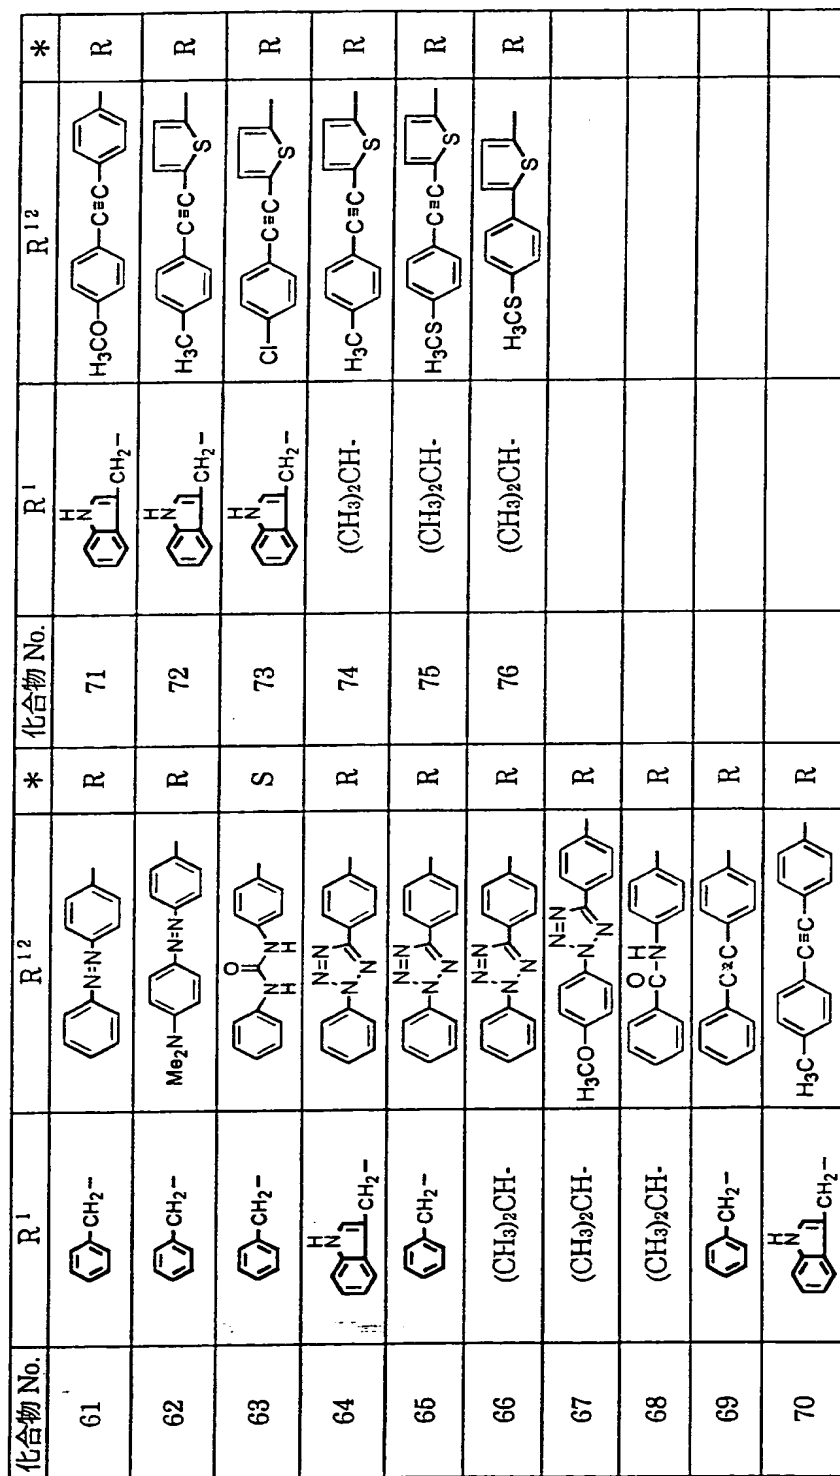 化合物 No. R¹ R¹² * 化合物 No. R¹ R¹² *
61 CH₂− N=N R 71 H N CH₂− H₃CO C≡C R
62 CH₂− Me₂N N=N R 72 H N CH₂− H₃C C≡C S R
63 CH₂− N H O N H S 73 H N CH₂− Cl C≡C S R
64 H N CH₂− N=N N N R 74 (CH₃)₂CH- H₃C C≡C S R
65 CH₂− N=N N N R 75 (CH₃)₂CH- H₃CS C≡C S R
66 (CH₃)₂CH- N=N N N R 76 (CH₃)₂CH- H₃CS S R
67 (CH₃)₂CH- H₃CO N=N N N R
68 (CH₃)₂CH- O H C-N R
69 CH₂− C≡C R
70 H N CH₂− H₃C C≡C R